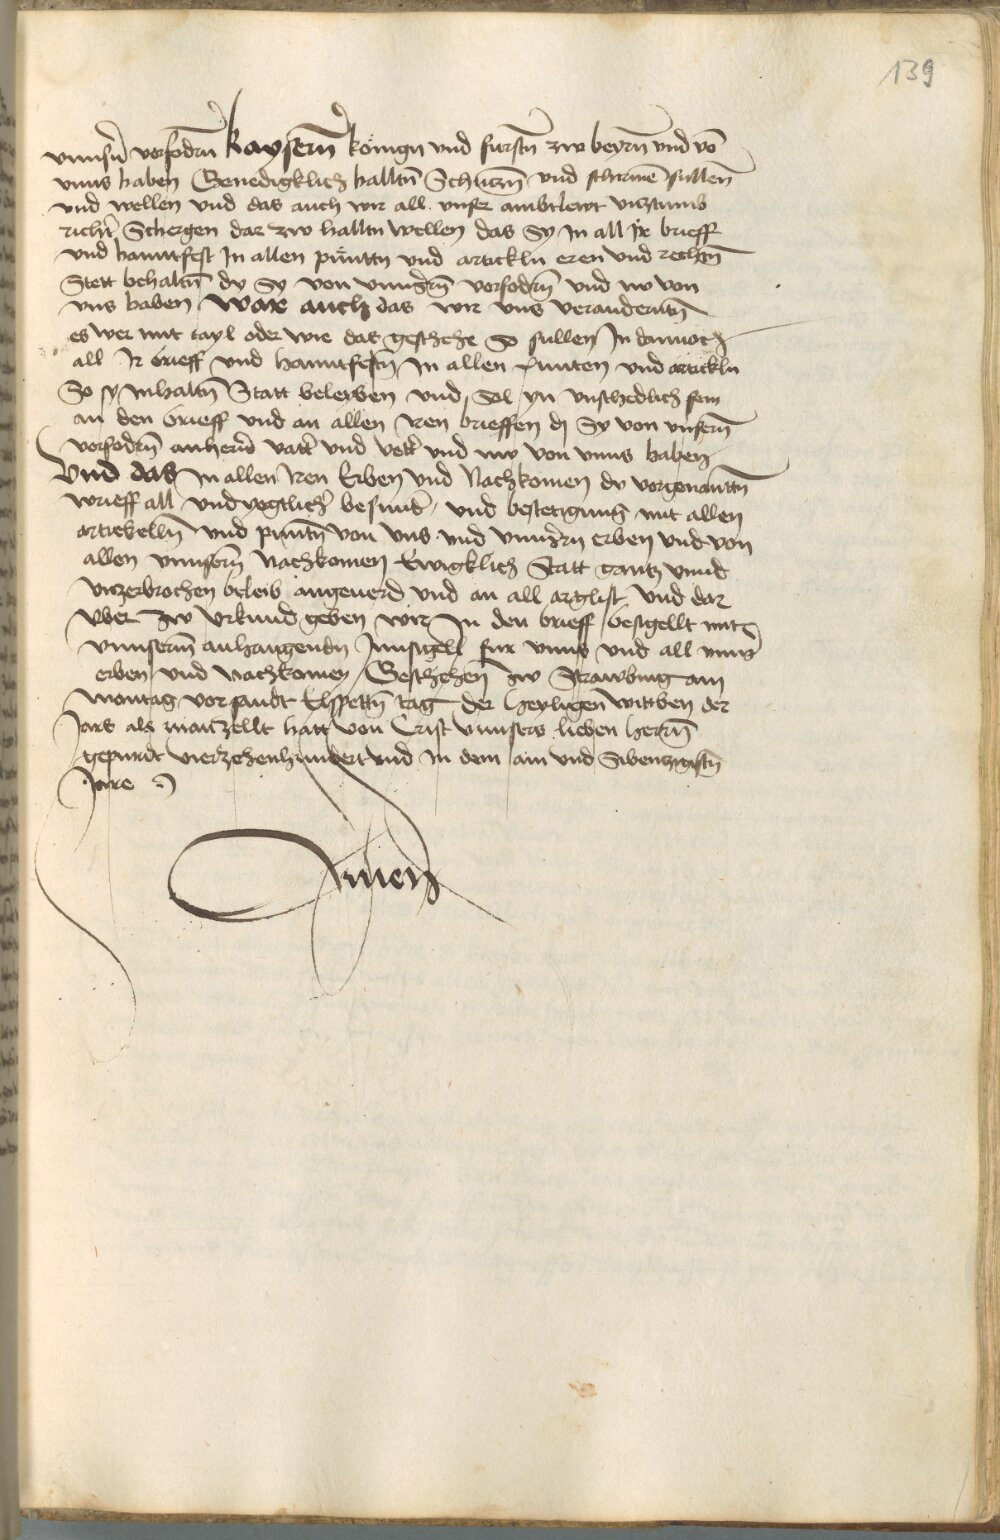 139
vnnsrn̄ vorfodrn̄ kaysern̄ könign vnd furstn̄ zw beyrn̄ vnd vō
vnns haben Genedigklich halltn̄ Schutzn̄ vnd schirmē sullen̄
vnd wellen vnd das auch wir all vnser ambtlewt viztumb
richtr̄ Schergen dar zw halltn wellen das Sy in all jr brieff
vnd hanntfest In allen pünttn vnd artickln eren vnd rechtn̄
Stett behaltn̄ dy Sy von vnnsrn̄ vorfodrn̄ vnd nw von
vns haben Wăr auch das wir vns verandertn̄
es wer mit tayl oder wie das geschehe So sullen In dannoch
all Ir brieff vnd hanntfestn̄ In allen puntten vnd artickln
So sy Inhaltn̄ Statt beleyben vnd Sol yn vnschedlich sein
an den brieff vnd an allen Iren brieffen dy Sy von vnsern̄
vorfodrn̄ anherrn̄ vatr̄ vnd vetr̄ vnd nw von vnns haben
Vnd das In allen Iren Erben vnd Nachkomen dy vorgenanttn̄
brieff all vnd yegtlichr̄ besundr̄ vnd bestetigung mit allen
artickelln̄ vnd punttn̄ von vns vnd vnnsrn̄ erben vnd von
allen vnnsern̄ Nachkomen Ewigklich Statt gantz vnnd
vnzerbrochen beleib angeuerd vnd an all arglist Vnd dar
vber zw Vrkund geben wir In den brieff besigellt mit
vnnserm̄ anhangendn̄ Innsigell fur vnns vnd all vnnsr̄
erben vnd nachkomen Geschehen̄ zw Strawbing am
Montag vor sandt Elspettn̄ tag der heyligen̄ wittben der
Jare als man zellt hatt von Crist vnnsers lieben herrn̄
gepurdt vierzehenhundert vnd In dem ain vnd Sibentzigistn̄
Jare
Amen